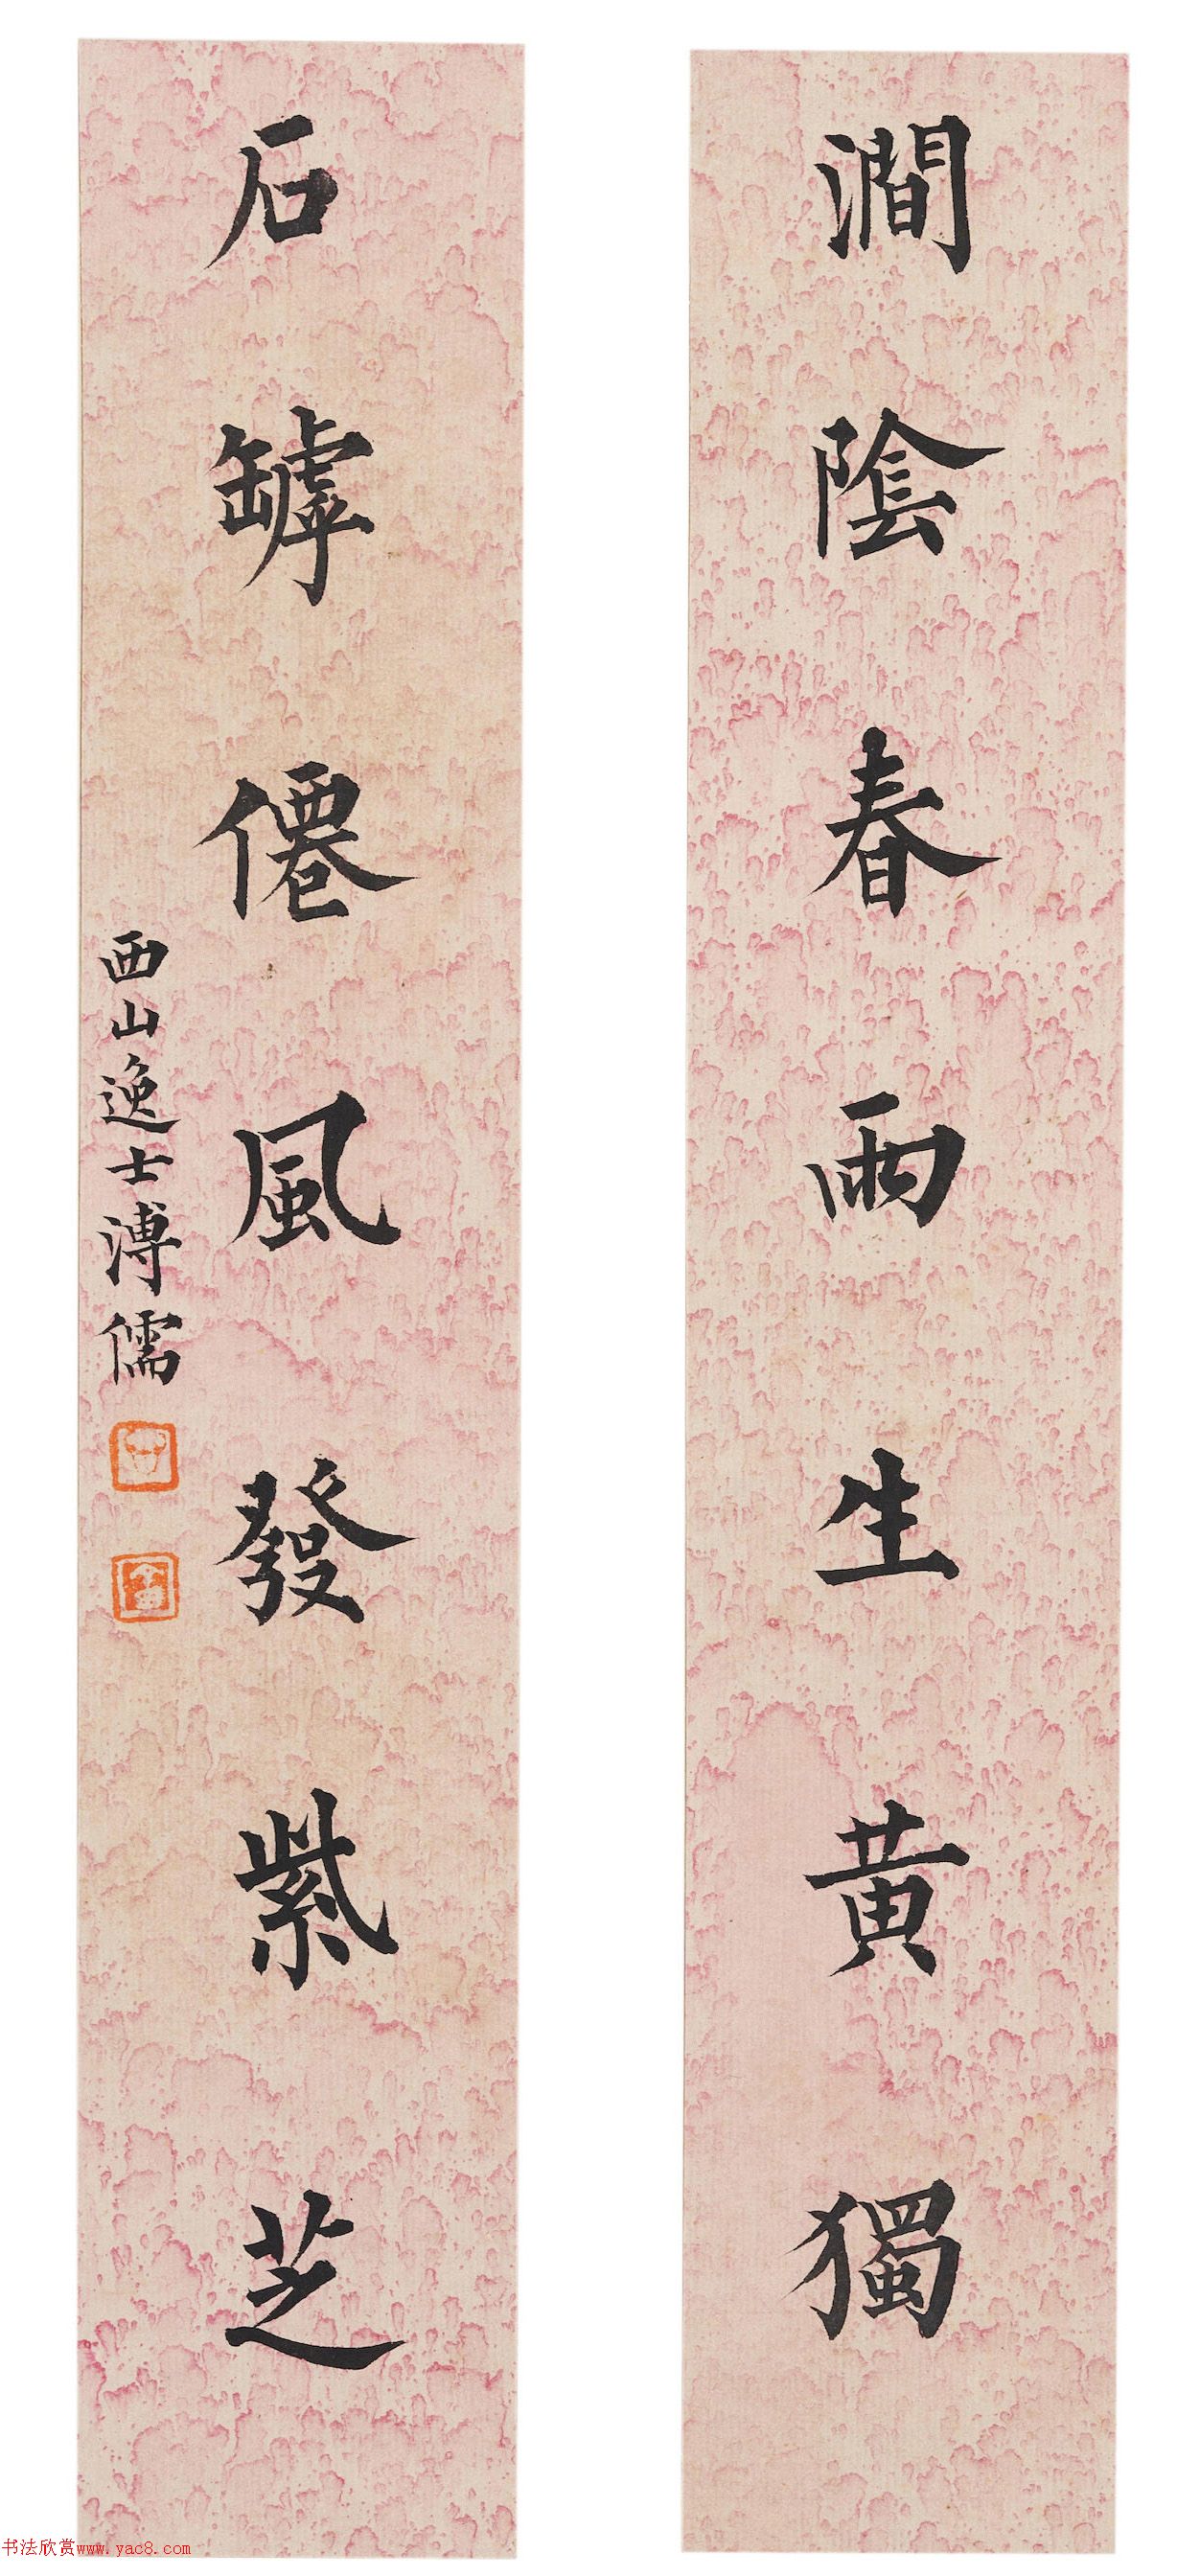 澗陰春雨生黃獨
石罅僊風發紫芝
西山逸士溥儒
书法欣赏www.yac8.com